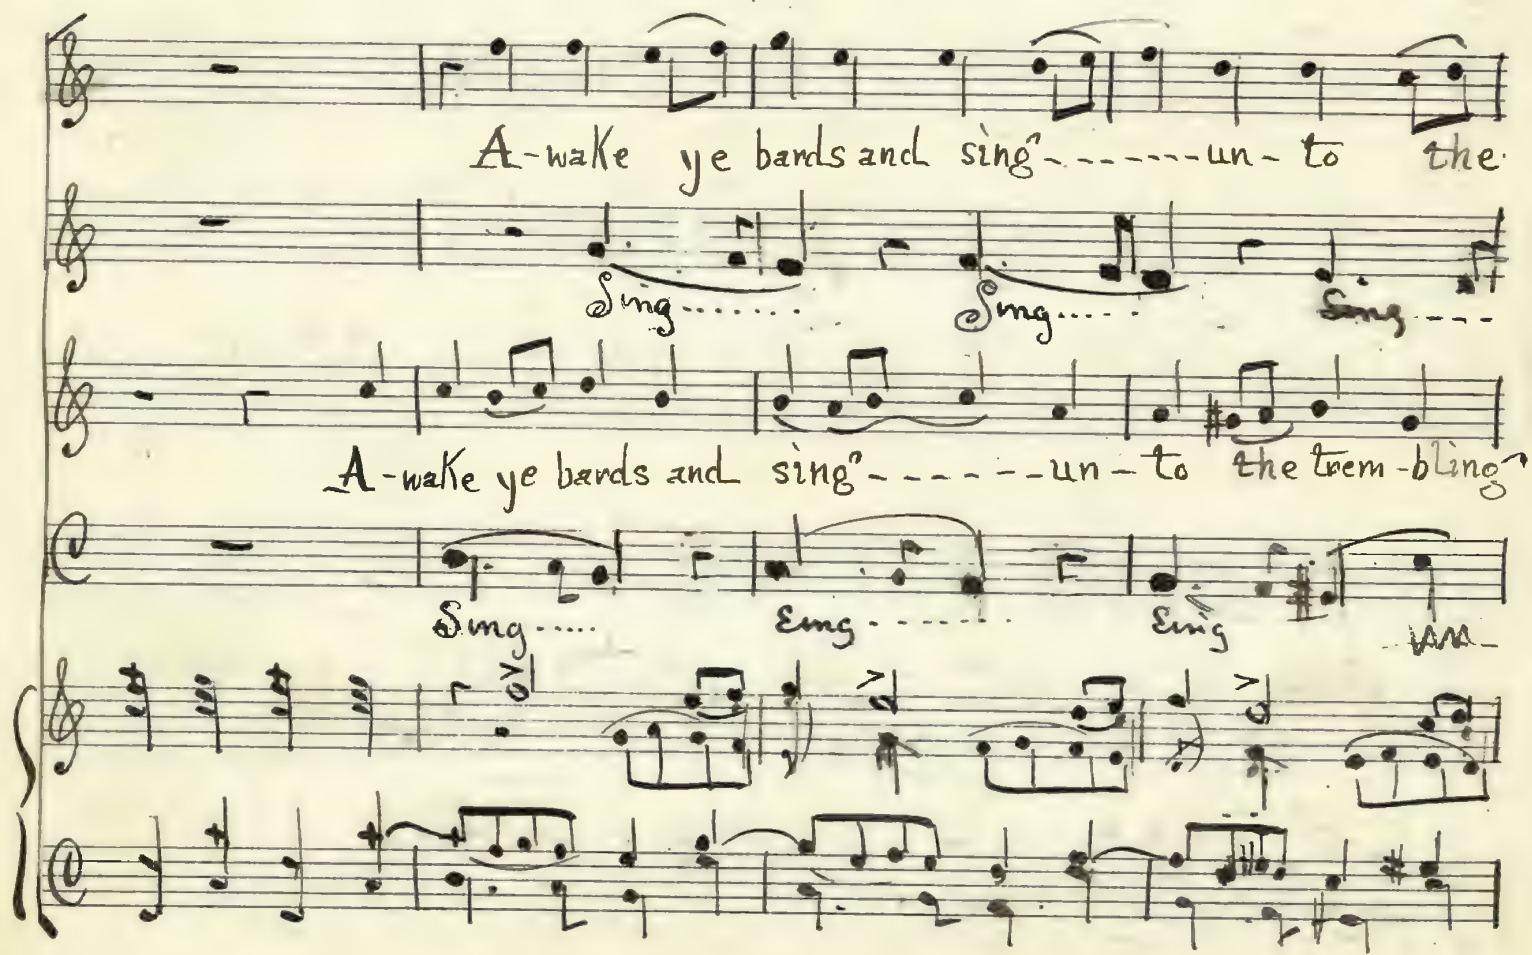 A-wake ye bards and sing--------un-to the
Sing....... Sing..... Sing----
A-wake ye bards and sing-------un-to the trem-bling
Sing..... Sing------- Sing